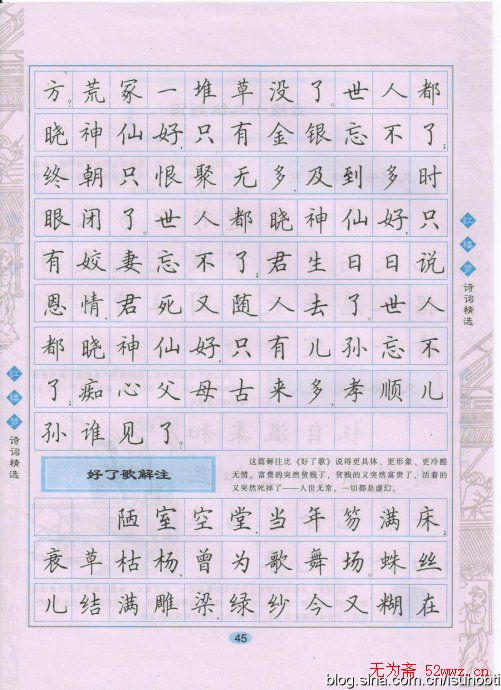 方。荒冢一堆草没了。世人都
晓神仙好,只有金银忘不了;
终朝只恨聚无多,及到多时
眼闭了。世人都晓神仙好,只
有姣妻忘不了;君生日日说
恩情,君死又随人去了。世人
都晓神仙好,只有儿孙忘不
了;痴心父母古来多,孝顺儿
孙谁见了。
好了歌解注
这篇解注比《好了歌》说得更具体、更形象、更冷酷
无情。富贵的突然贫贱了,贫贱的又突然富贵了,活着的
又突然死掉了——人世无常,一切都是虚幻。
陋室空堂,当年笏满床;
衰草枯杨,曾为歌舞场。蛛丝
儿结满雕梁,绿纱今又糊在
45
红楼梦诗词精选
红楼梦诗词精选
无为斋 52wwz.cn
blog.sina.com.cn/isunobti